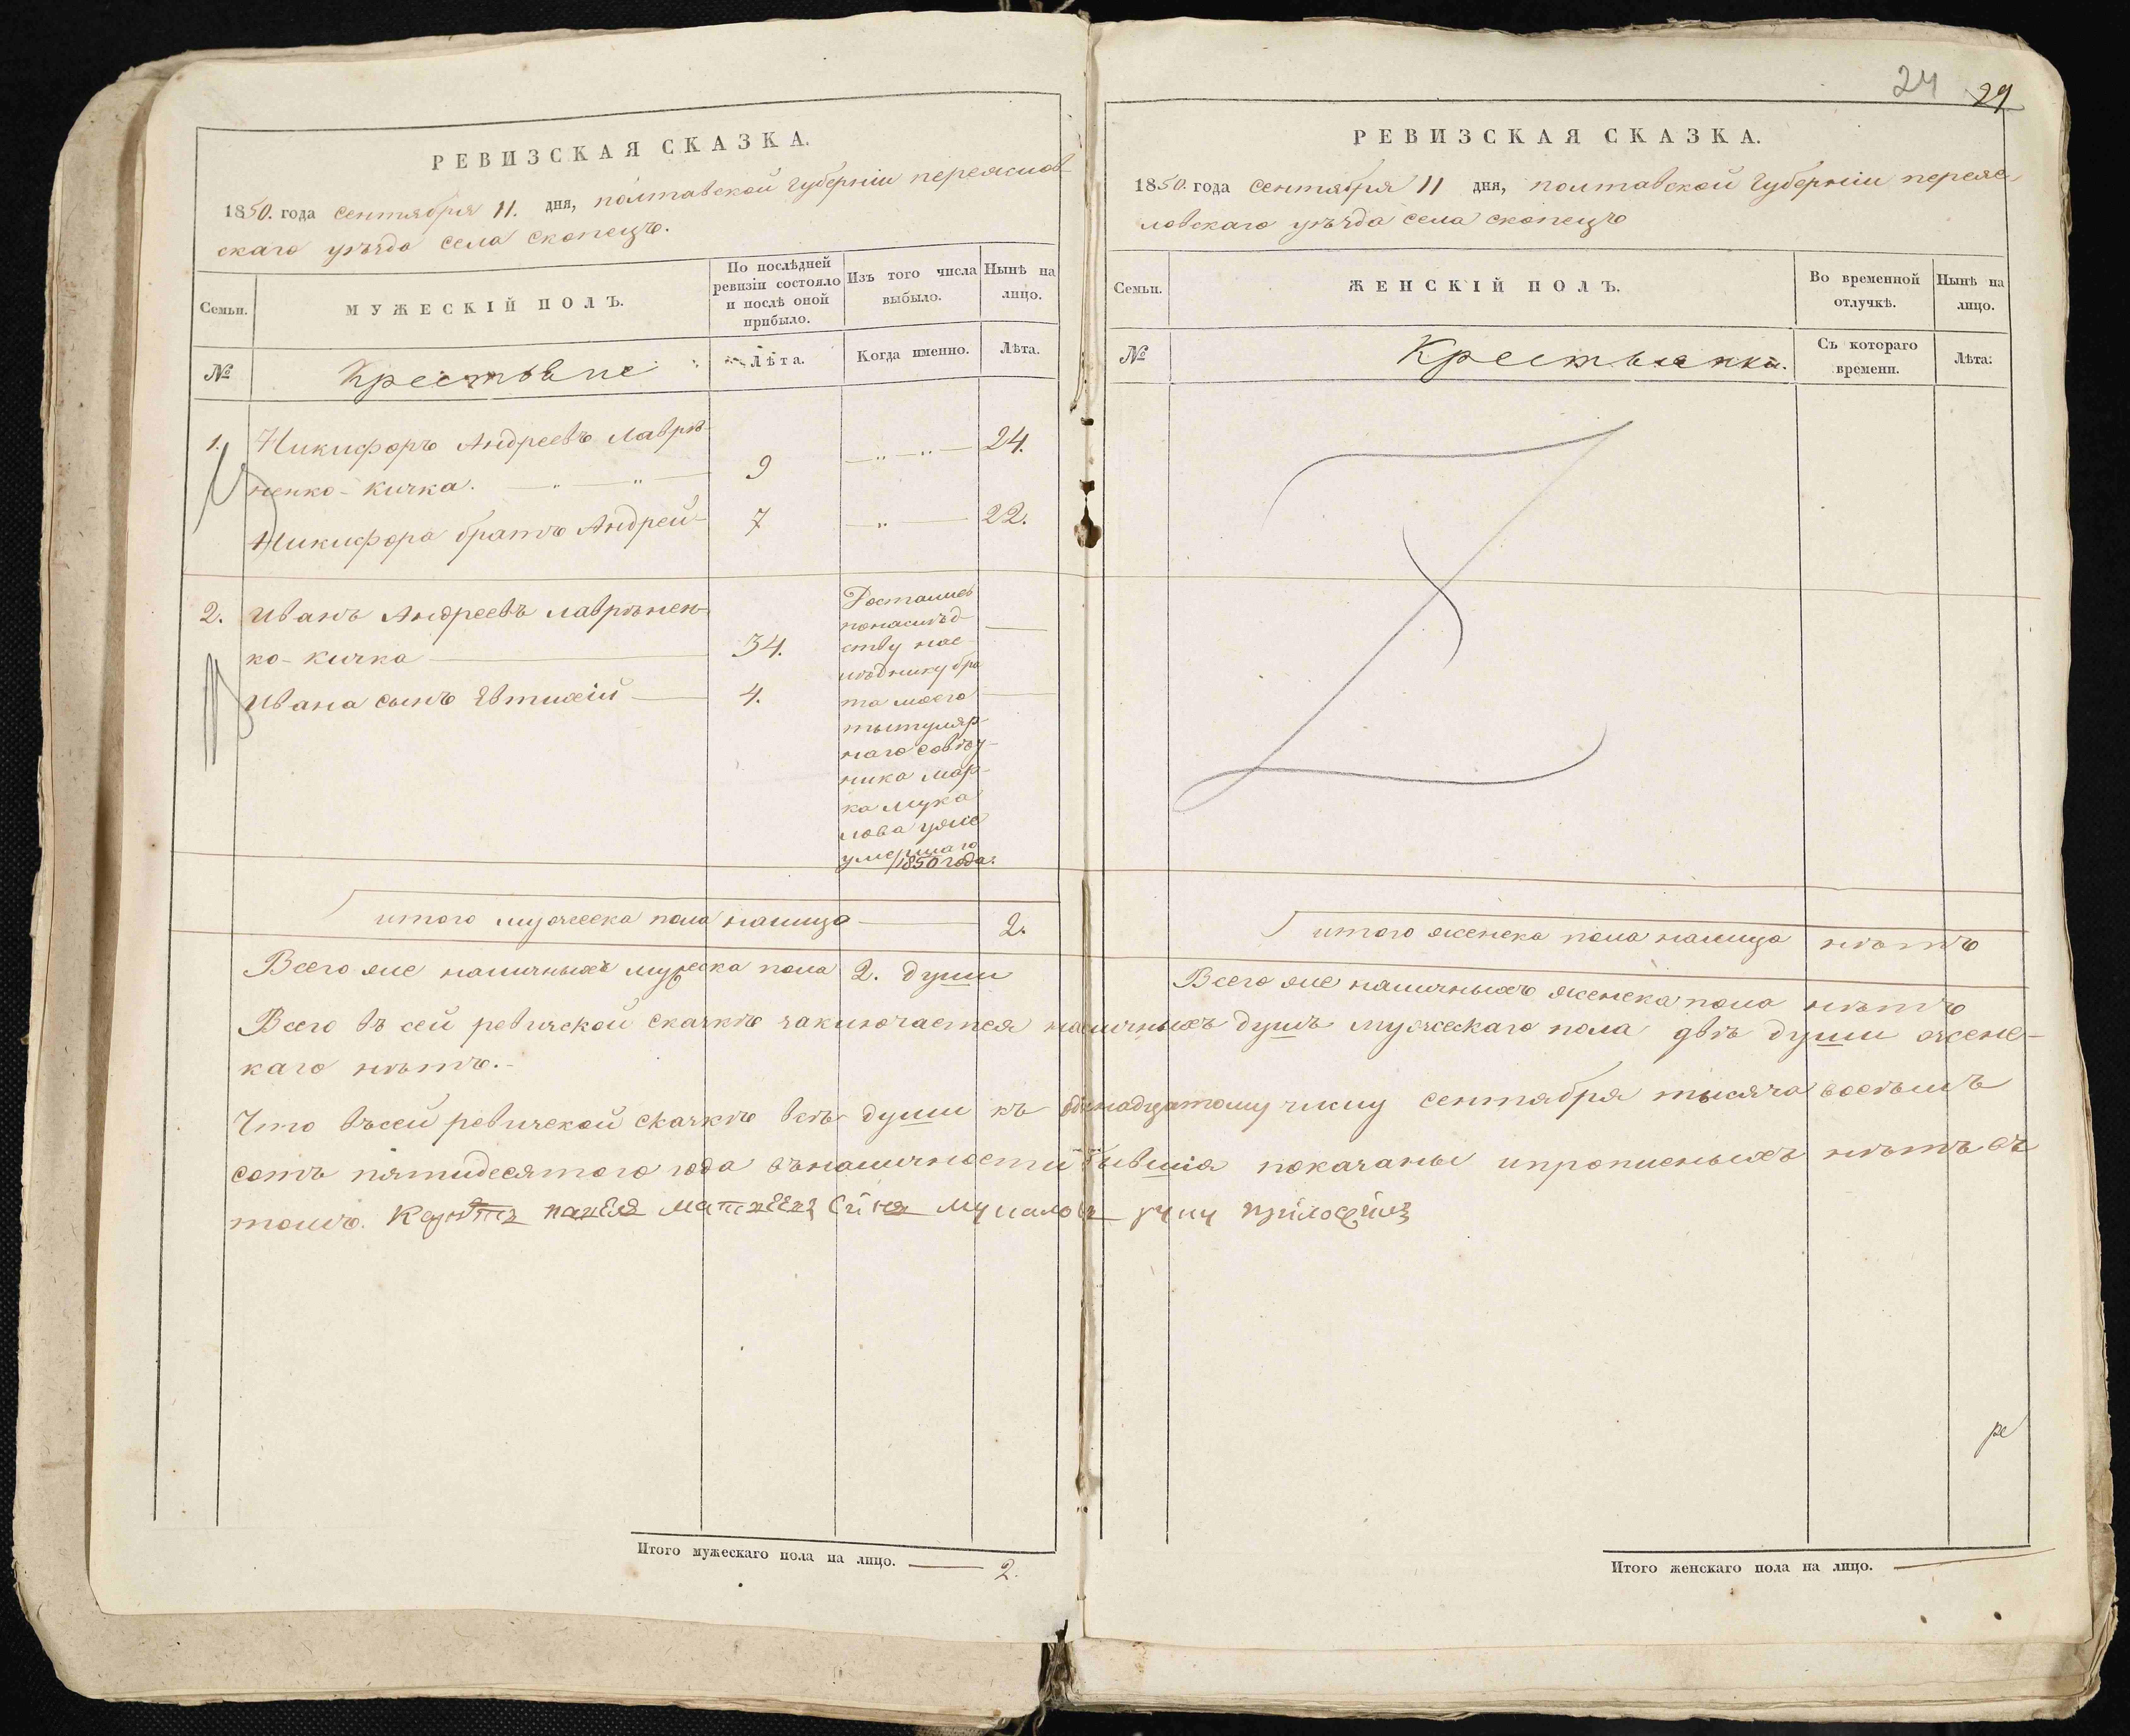 РЕВИЗСКАЯ СКАЗКА.
1850. года сентября 11. дня, полтавской губерніи переяслов-
скаго уѣзда села скопецъ.
Семьи.
МУЖЕСКІЙ ПОЛЪ.
По послѣдней ревизіи состояло и послѣ оной прибыло.
Изъ того числа выбыло.
Нынѣ на лицо.
№
Крестьяне
Лѣта.
Когда именно.
Лѣта.
1. Никифоръ Андреевъ Лаврѣ-
ненко-Кичка. 9 24.
Никифора братъ Андрей 7 22.
2. Иванъ Андреевъ лаврѣнен-
ко-кичка 34.
Ивана сынъ Евтихій 4.
Достались
понаслѣд-
ству нас-
лѣднику бра
та моего
тытуляр-
наго совѣт-
ника Мар-
ка Мука
лова уже
умершаго
1850 года.
итого мужеска пола налицо 2.
Всего же наличныхъ мужеска пола 2. души
РЕВИЗСКАЯ СКАЗКА.
24 29
1850. года сентября 11 дня, полтавской губерніи переяс-
ловскаго уѣзда села скопецъ
Семьи.
ЖЕНСКІЙ ПОЛЪ.
Во временной отлучкѣ.
Нынѣ на лицо.
№
Крестьянки.
Съ котораго времени.
Лѣта:
итого женска пола налицо нѣтъ
Всего же наличныхъ женска пола нѣтъ
Всего въ сей ревизской сказкѣ заключается наличныхъ душъ мужескаго пола двѣ души женс-
каго нѣтъ.-
Что въсей ревизской сказкѣ всѣ души къ одинадцатому числу сентября тысяча восѣмъ
сотъ пятидесятого года вналичности бывшіа показаны ипрописныхъ нѣтъ въ
томъ. мукалов руку приложил
Итого мужескаго пола на лицо. 2.
Итого женскаго пола на лицо.